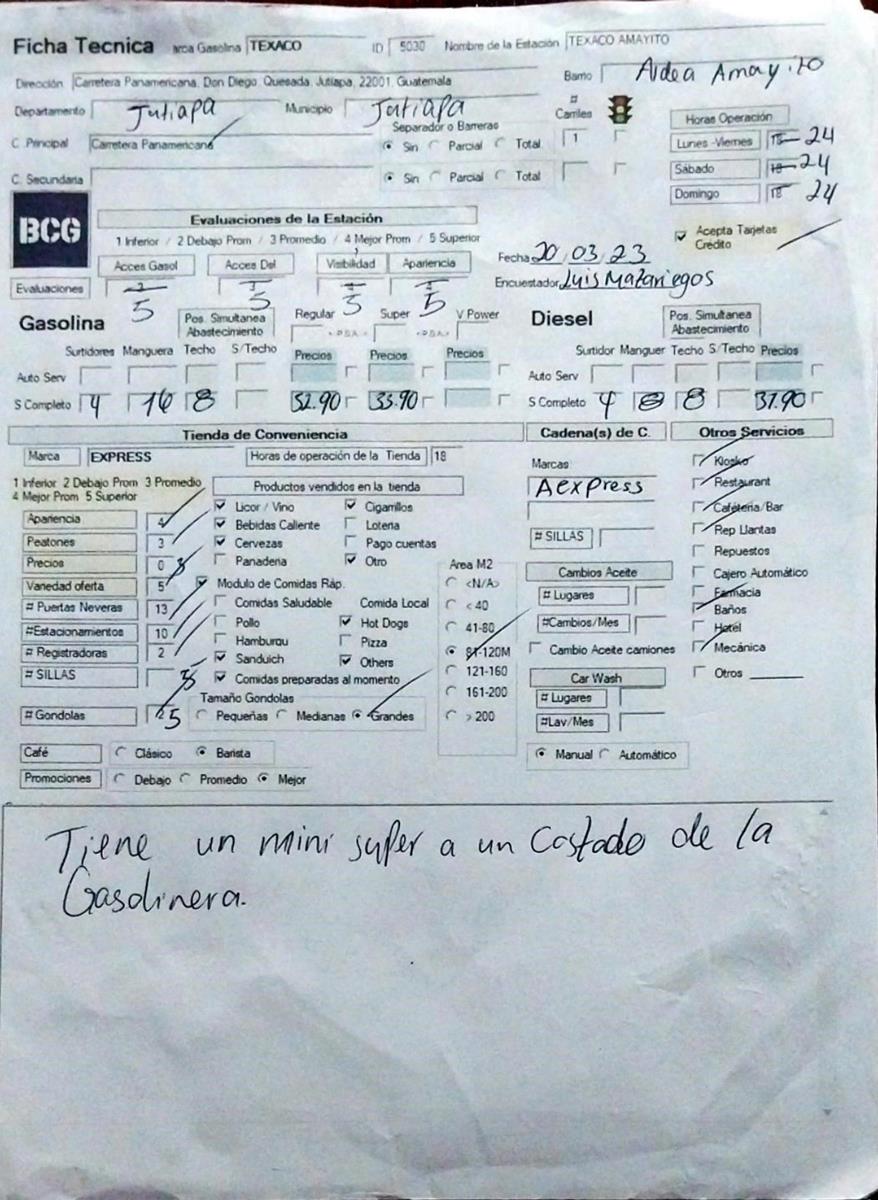 Ficha Tecnica arca Gasolina TEXACO ID 5030 Nombre de la Estación TEXACO AMAYITO
Dirección Carretera Panamericana, Don Diego, Quesada, Jutiapa, 22001, Guatemala Barrio Aldea Amayito
Departamento Jutiapa Municipio Jutiapa # Carriles Horas Operación
C. Principal Carretera Panamericana Separador o Barreras Sin Parcial Total 1 Lunes -Viernes 18 24
C. Secundaria Sin Parcial Total Sábado 18 24
Domingo 18 24
BCG Evaluaciones de la Estación
1 Inferior / 2 Debajo Prom / 3 Promedio / 4 Mejor Prom / 5 Superior Acepta Tarjetas Crédito
Acces Gasol Acces Del Visibilidad Apariencia Fecha 20/03/23
Evaluaciones 5 5 5 5 Encuestador Luis Mazariegos
Gasolina Pos. Simultanea Abastecimiento Regular Super V Power Diesel Pos. Simultanea Abastecimiento
Surtidores Manguera Techo S/Techo Precios Precios Precios Surtidor Manguer Techo S/Techo Precios
Auto Serv Auto Serv
S Completo 4 16 8 32.90 33.90 S Completo 4 8 8 31.90
Tienda de Conveniencia Cadena(s) de C. Otros Servicios
Marca EXPRESS Horas de operación de la Tienda 18 Marcas Kiosko
1 Inferior 2 Debajo Prom 3 Promedio Productos vendidos en la tienda Aexpress Restaurant
4 Mejor Prom 5 Superior Cafeteria/Bar
Apariencia 4 Licor / Vino Cigarrillos Rep Llantas
Peatones 3 Bebidas Caliente Loteria # SILLAS Repuestos
Precios 0 3 Cervezas Pago cuentas Cajero Automático
Variedad oferta 5 Panaderia Otro Area M2 Cambios Aceite Farmacia
# Puertas Neveras 13 Modulo de Comidas Ráp. <N/A> # Lugares Baños
#Estacionamientos 10 Comidas Saludable Comida Local < 40 #Cambios/Mes Hotel
# Registradoras 2 Pollo Hot Dogs 41-80 Cambio Aceite camiones Mecánica
# SILLAS Hamburqu Pizza 81-120M Car Wash Otros
Sanduich Others 121-160 # Lugares
35 Comidas preparadas al momento 161-200 #Lav/Mes
# Gondolas 5 Tamaño Gondolas Pequeñas Medianas Grandes > 200
Café Clásico Barista Manual Automático
Promociones Debajo Promedio Mejor
Tiene un mini super a un costado de la
Gasolinera.